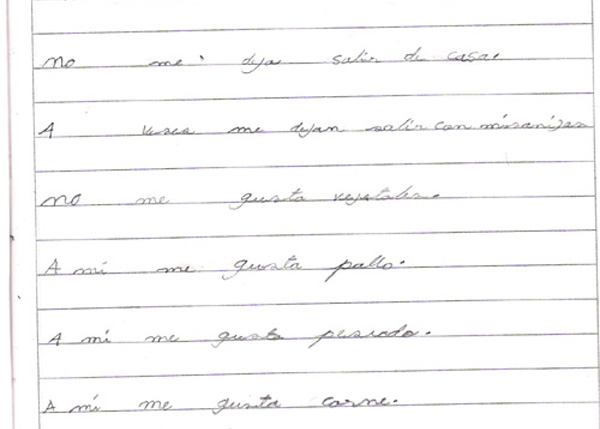 No me deja salir de casa.
A veses me dejan salir con mis
No me gusta vejetales.
A mi me gusta pollo.
A mí me gusta pescado.
A mí me gusta carne.